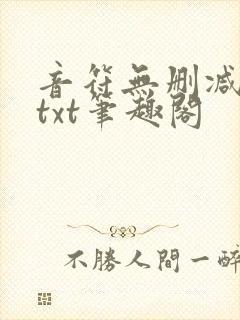 音符無刪減
txt筆趣閣
不勝人間一醉